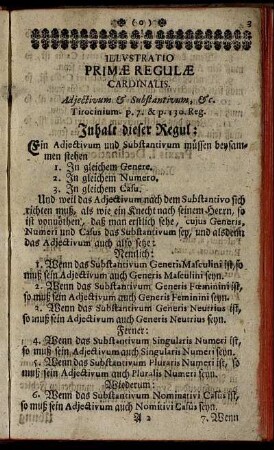 (o) 3
ILLVSTRATIO
PRIMÆ REGULÆ
CARDINALIS.
Adjectivum & Substantivum, &c.
Tirocinium. p. 7. & p. 130. Reg.
Inhalt dieser Regul:
Ein Adjectivum und Substantivum müssen beysam-
men stehen
1. In gleichem Genere,
2. In gleichem Numero,
3. In gleichem Casu.
Und weil das Adjectivum nach dem Substantivo sich
richten muß, als wie ein Knecht nach seinem Herrn, so
ist vonnöthen, daß man erstlich sehe, cujus Generis,
Numeri und Casus das Substantivum sey, und alsdenn
das Adjectivum auch also setze:
Nemlich:
1. Wenn das Substantivum Generis Masculini ist,
so muß sein Adjectivum auch Generis Masculini seyn.
2. Wenn das Substantivum Generis Fœminini ist,
so muß sein Adjectivum auch Generis Fœminini seyn.
3. Wenn das Substantivum Generis Neutrius ist,
so muß sein Adjectivum auch Generis Neutrius seyn.
Ferner:
4. Wenn das Substantivum Singularis Numeri ist,
so muß sein Adjectivum auch Singularis Numeri seyn.
5. Wenn das Substantivum Pluralis Numeri ist, so
muß sein Adjectivum auch Pluralis Numeri seyn.
Wiederum:
6. Wenn das Substantivum Nominativi Casus ist,
so muß sein Adjectivum auch Nomitivi Casus seyn.
A 2 7. Wenn